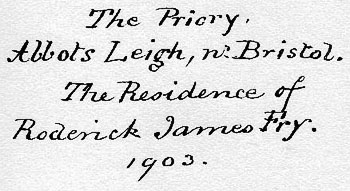 The Priory.
Abbots Leigh, nr. Bristol.
The Residence of
Roderick James Fry.
1903.